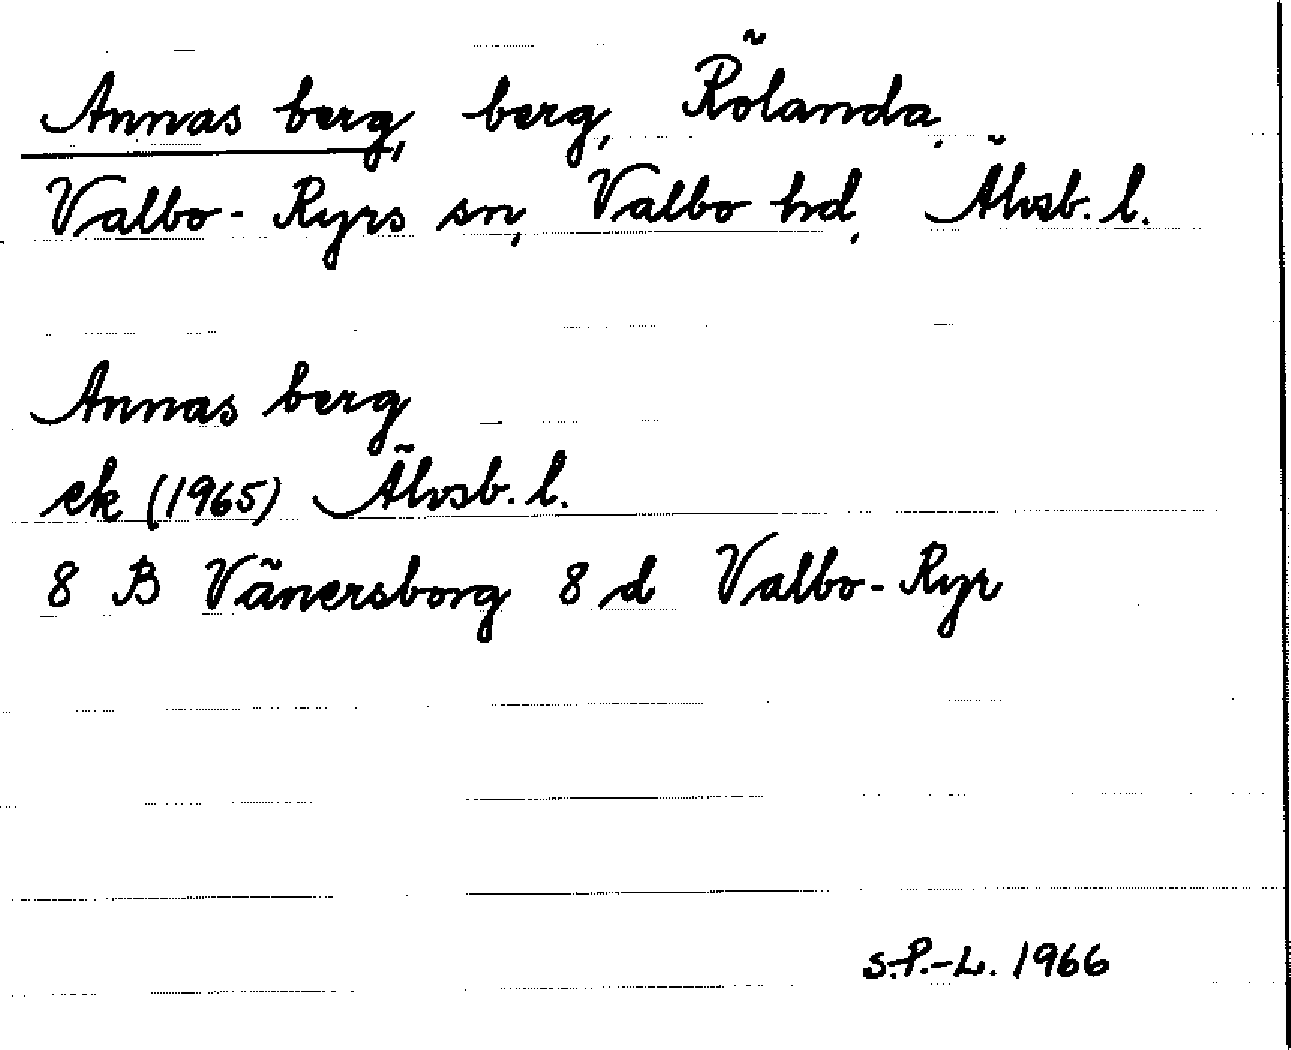 Annas berg, berg, Rölanda,
Valbo-Ryrs sn, Valbo hd, Älvsb. l.
Annas berg
ek (1965) Älvsb. l.
8 B Vänersborg 8 d Valbo-Ryr
S.P.-L. 1966